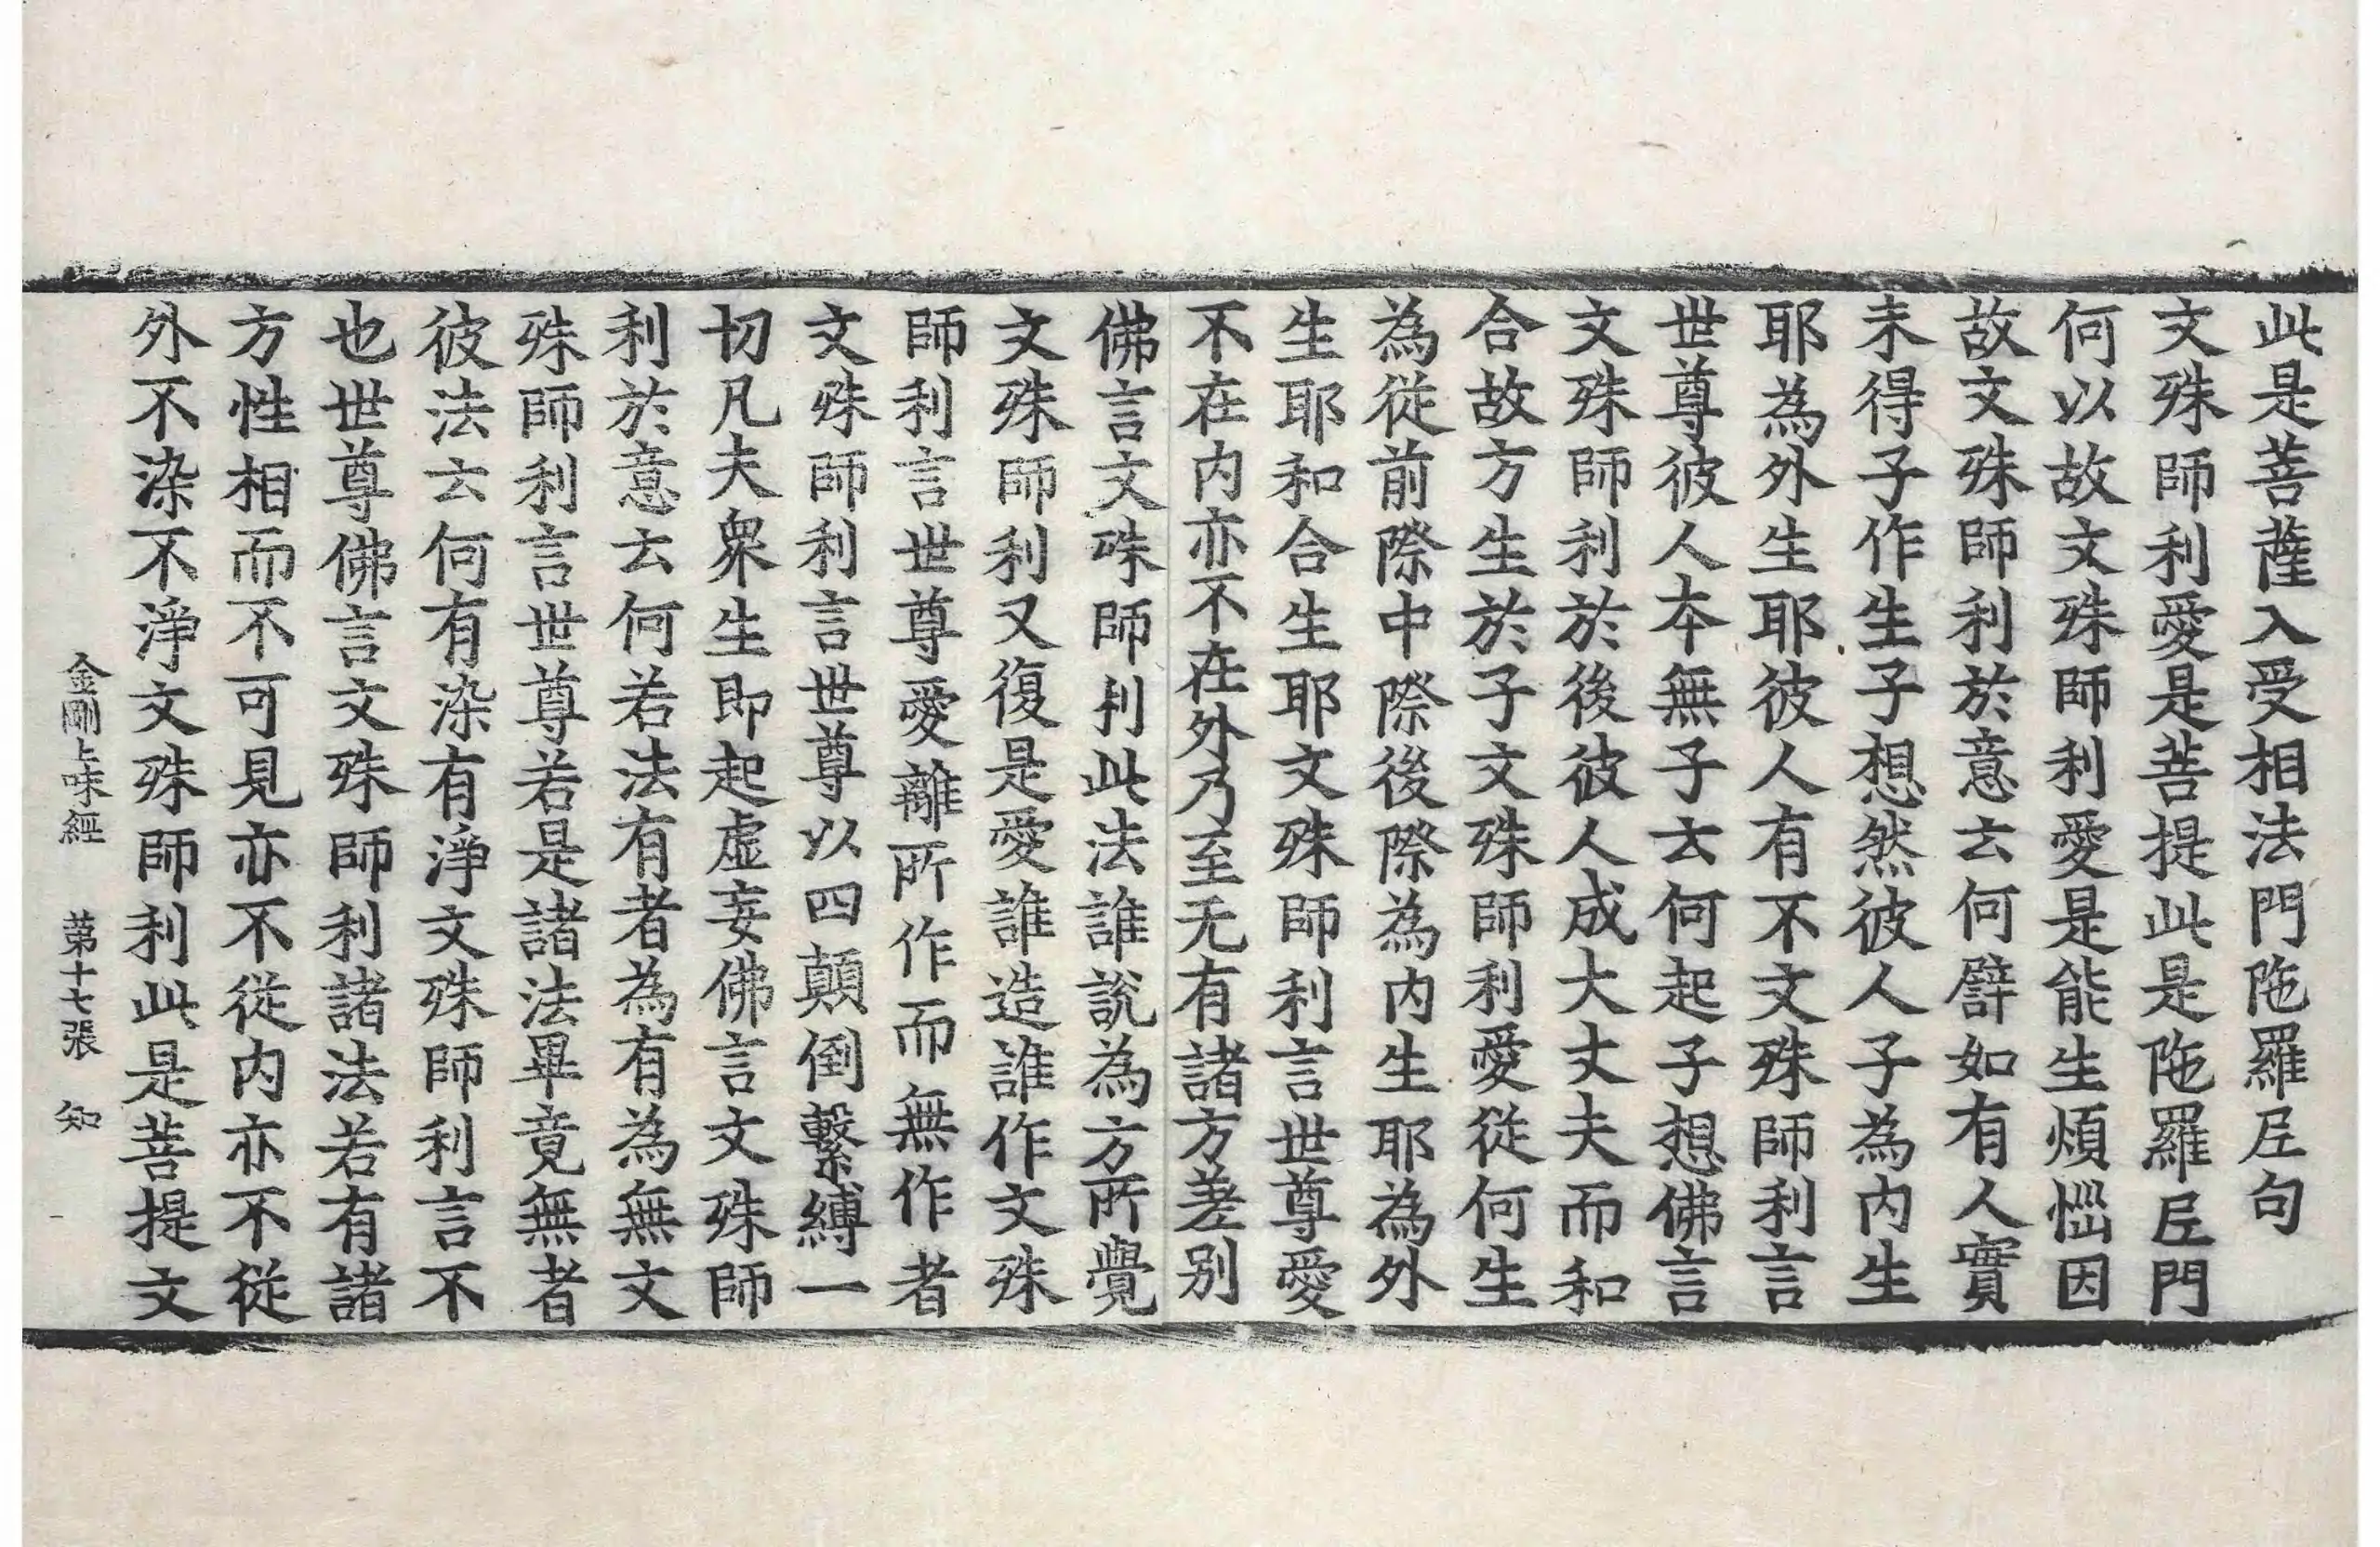 此是菩薩入受相法門陁羅𡰱句
文殊師利愛是菩提此是陁羅𡰱門
何以故文殊師利愛是能生煩惱因
故文殊師利於意云何譬如有人實
未得子作生子想然彼人子為内生
耶為外生耶彼人有不文殊師利言
世尊彼人本無子云何起子想佛言
文殊師利於後彼人成大丈夫而和
合故方生於子文殊師利愛從何生
為從前際中際後際為内生耶為外
生耶和合生耶文殊師利言世尊愛
不在内亦不在外乃至无有諸方差别
佛言文殊師利此法誰說為方所覺
文殊師利又復是愛誰造誰作文殊
師利言世尊愛離所作而無作者
文殊師利言世尊以四顛倒繫縛一
切凡夫衆生即起虛妄佛言文殊師
利於意云何若法有者為有為無文
殊師利言世尊若是諸法畢竟無者
彼法云何有染有淨文殊師利言不
也世尊佛言文殊師利諸法若有諸
方性相而不可見亦不從内亦不從
外不染不淨文殊師利此是菩提文
金剛上味經 第十七張 知